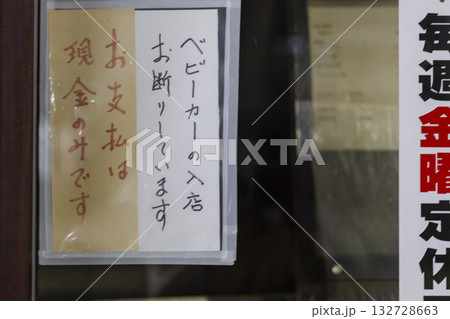 毎週金曜定休
ベビーカーの入店
お断りしています
お支払は
現金のみです
adobestock
132728663